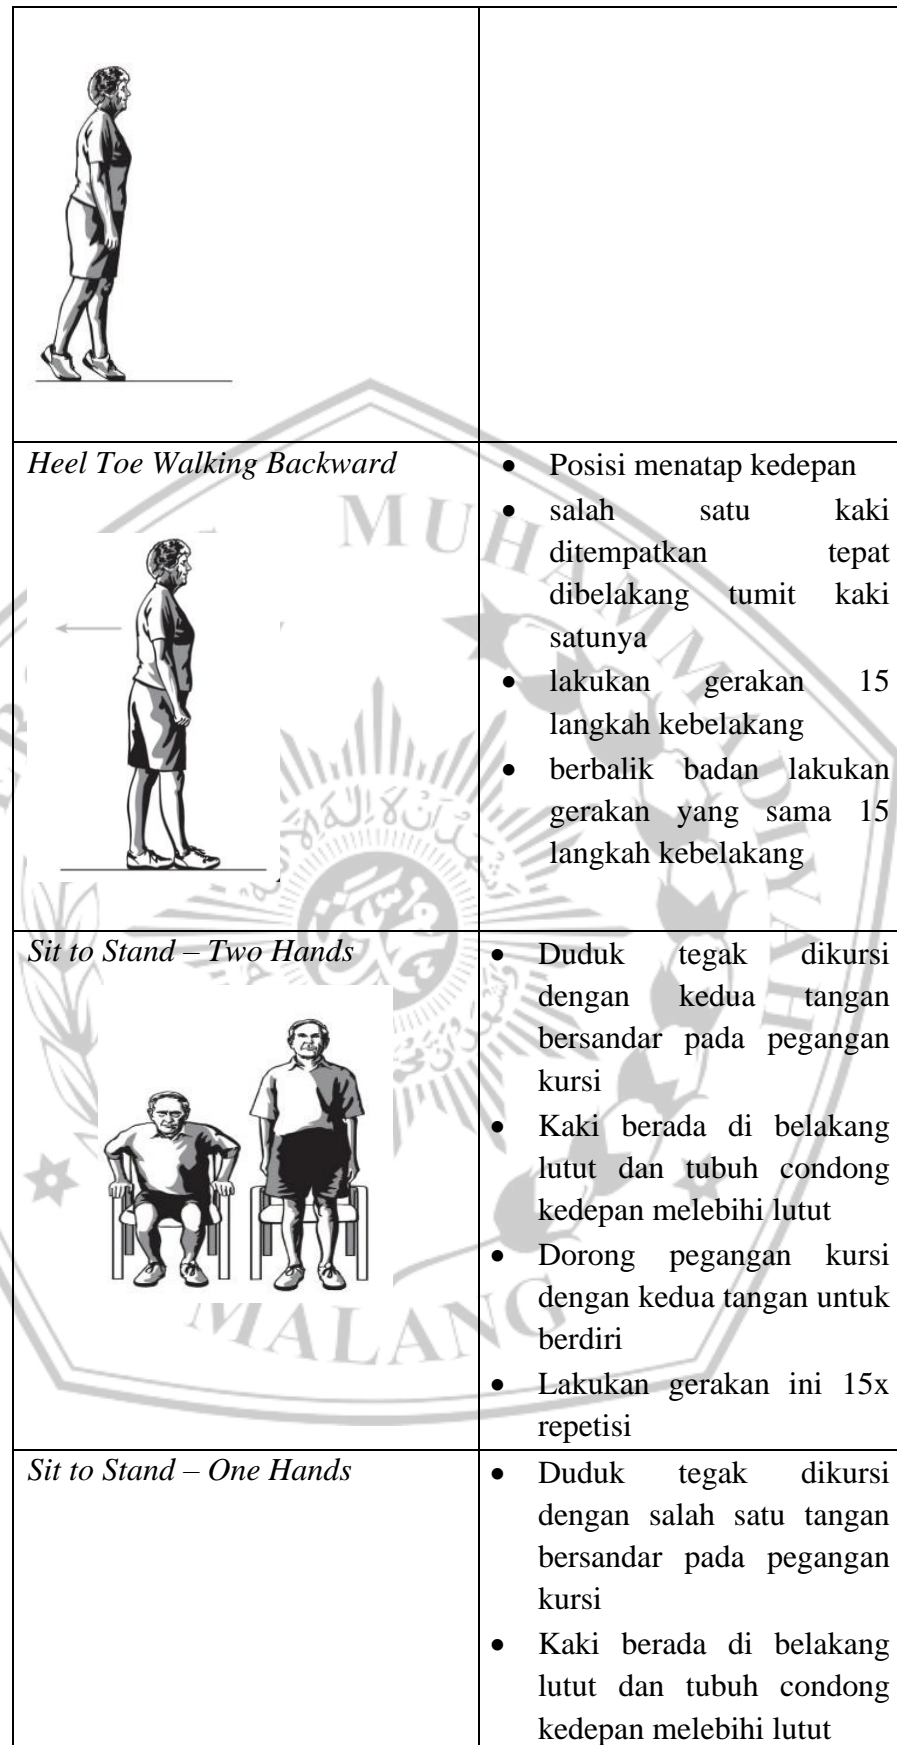 Heel Toe Walking Backward
• Posisi menatap kedepan
• salah satu kaki
ditempatkan tepat
dibelakang tumit kaki
satunya
• lakukan gerakan 15
langkah kebelakang
• berbalik badan lakukan
gerakan yang sama 15
langkah kebelakang
Sit to Stand – Two Hands
• Duduk tegak dikursi
dengan kedua tangan
bersandar pada pegangan
kursi
• Kaki berada di belakang
lutut dan tubuh condong
kedepan melebihi lutut
• Dorong pegangan kursi
dengan kedua tangan untuk
berdiri
• Lakukan gerakan ini 15x
repetisi
Sit to Stand – One Hands
• Duduk tegak dikursi
dengan salah satu tangan
bersandar pada pegangan
kursi
• Kaki berada di belakang
lutut dan tubuh condong
kedepan melebihi lutut
MUHAMMADIYAH
MALANG